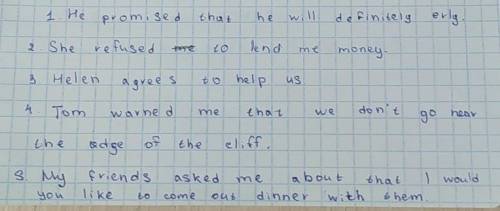 1. He promised that he will definitely erly.
2 She refused me to lend me money.
3 Helen agrees to help us
4. Tom warned me that we don't go near
the edge of the cliff.
5. My friends asked me about that I would
you like to come out dinner with them.